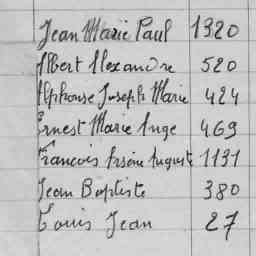 Jean Marie Paul 1320
Albert Alexandre 520
Alphonse Joseph Marie 424
Ernest Marie Ange 469
Francois Arsène Auguste 1131
Jean Baptiste 380
Louis Jean 27